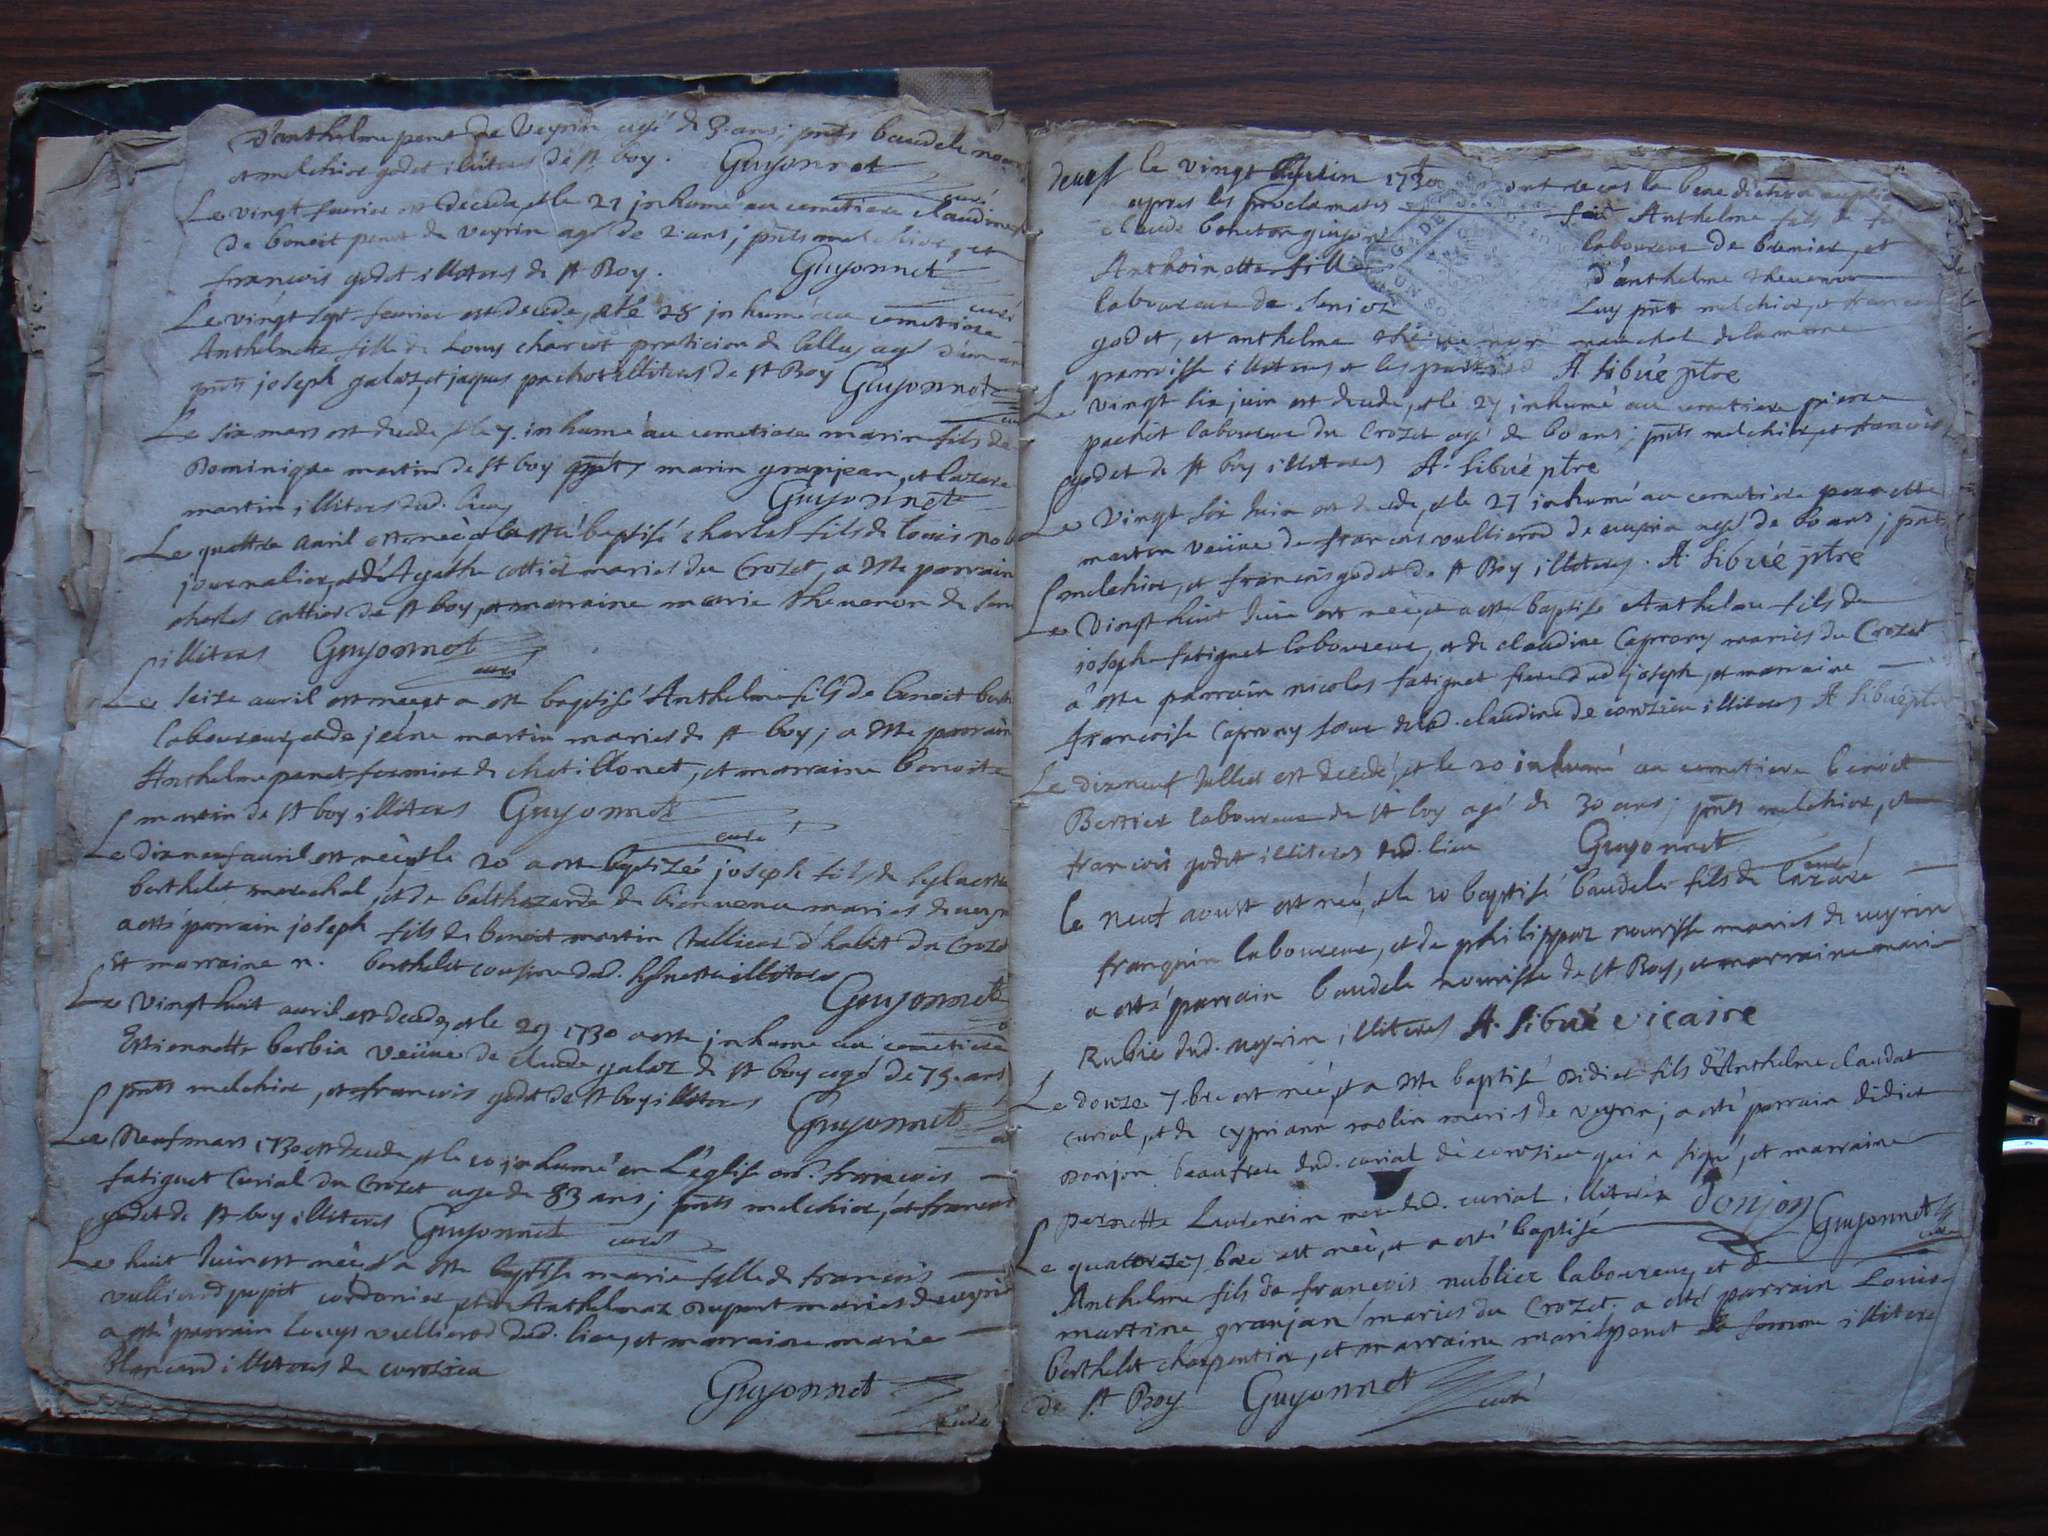 d'anthelme penet de Veyrin agé de 3. ans; pnts baudele
et melchior godet illiteres de st boy. Guyonnet
curé
Le vingt fevrier est decede, et le 21 inhumé au cemetiere claudine
de benoit penet de veyrin agé de 2. ans; pnts melchior, et
francois godet illiteres de st Boy. Guyonnet
curé
Le vingt sept fevrier est decede, et le 28 inhumé au cemetiere
Anthelmette fille de Louys charcot praticien de agé d'un an
pnts joseph galaz, et jaques pachot illiteres de st Boy Guyonnet
Le six mars est decede et le 7. inhumé au cemetiere marin fils de
Dominique martin de st boy pnts marin granjean, et lazare
martin illiteres dud. lieu Guyonnet
Le quattre avril est né, et a esté baptisé charles fils de Louis
journalier, et d'Agathe cottier mariés du Crozet, a esté parrain
charles cottier de st boy, et marraine marie thevenon de
illiteres Guyonnet
curé
Le seize avril est né et a esté baptisé Anthelme fils de benoit
laboureur, et de jeane martin mariés de st boy; a esté parrain
Anthelme penet fermier de chatillonet, et marraine benoite
martin de st boy illiteres Guyonnet
curé
Le dixneuf avril est né et le 20 a esté baptizé joseph fils de sylvestre
berthelet marechal, et de balthazarde de bienvenu mariés de
a esté parrain joseph fils de benoit martin tallieur d'habit du Crozet
Et marraine n. berthelet cousine dud. sylvestre illiteres
Guyonnet
Le vingt huit avril est decede, et le 29 1730 a esté inhumé au cemetiere
Estiennette berbia veüve de claude galaz de st boy agé de 75. ans
pnts melchior, et francois godet de st boy illiteres Guyonnet
Le Neuf mars 1730 est decede et le 10 inhumé en L'église francois
fatiguet Curial du Crozet agé de 83 ans; pnts melchior, et francois
godet de st boy illiteres Guyonnet curé
Le huit Juin est née et a esté baptisé marie fille de francois
vullierod pupit cordonier et de Anthelmaz Dupont mariés de veyrin
a esté parrain Louys vullierod dud. lieu, et marraine marie
blancard illiteres de
Guyonnet
curé
le vingt 1730 ont receus la benediction
apres les proclamates Anthelme fils de
claude laboureur de bremier, et
Anthoinette fille d'anthelme thevenon
laboureur de Luy pnts melchior, et francois
godet, et anthelme thevenon marechal de la meme
parroisse illiteres et les parties A Sibué ptre
Le vingt six juin est decede, et le 27 inhumé au cemetiere pierre
pachot laboureur du Crozet agé de 60 ans; pnts melchior, et francois
godet de st boy illiteres A. Sibué ptre
Le vingt six Juin est decede, et le 27 inhumé au cemetiere pernette
martin veüve de francois vullierod de veyrin agé de 60 ans; pnts
melchior, et francois godet de st Boy illiteres. A. Sibué ptre
Le vingt huit Juin est né, et a esté baptisé Anthelme fils de
joseph fatiguet laboureur, et de claudine Caprony mariés du Crozet
a esté parrain nicolas fatiguet frere dud joseph, et marraine
francoise Caprony soeur de lad. claudine de illiteres A Sibué ptre
Le dixneuf Jullet est decedé, et le 20 inhumé au cemetiere benoit
Bertier laboureur de st boy agé de 30 ans; pnts melchior, et
francois godet illiteres dud. lieu Guyonnet
curé
le neuf aoust est né, et le 10 baptisé baudele fils de lazare
franquin laboureur, et de philippaz nourisse mariés de veyrin
a esté parrain baudele nourisse de st Boy, et marraine marie
Rubié dud. veyrin illiteres A. Sibué vicaire
Le douze 7bre est né, et a esté baptisé Didier fils d'Anthelme claudat
curial, et de cyprianne molin mariés de veyrin; a esté parrain didier
Donjon beaufrere dud. curial de qui a signé, et marraine
pernette Laurencin mere dud. curial illiterée donjon Guyonnet
curé
Le quatorze 7bre est né, et a esté baptisé
Anthelme fils de francois nublier laboureur, et de
martine granjan mariés du Crozet; a esté parrain Louis
berthelet charpentier, et marraine marie penet femme illitere
de st Boy Guyonnet curé